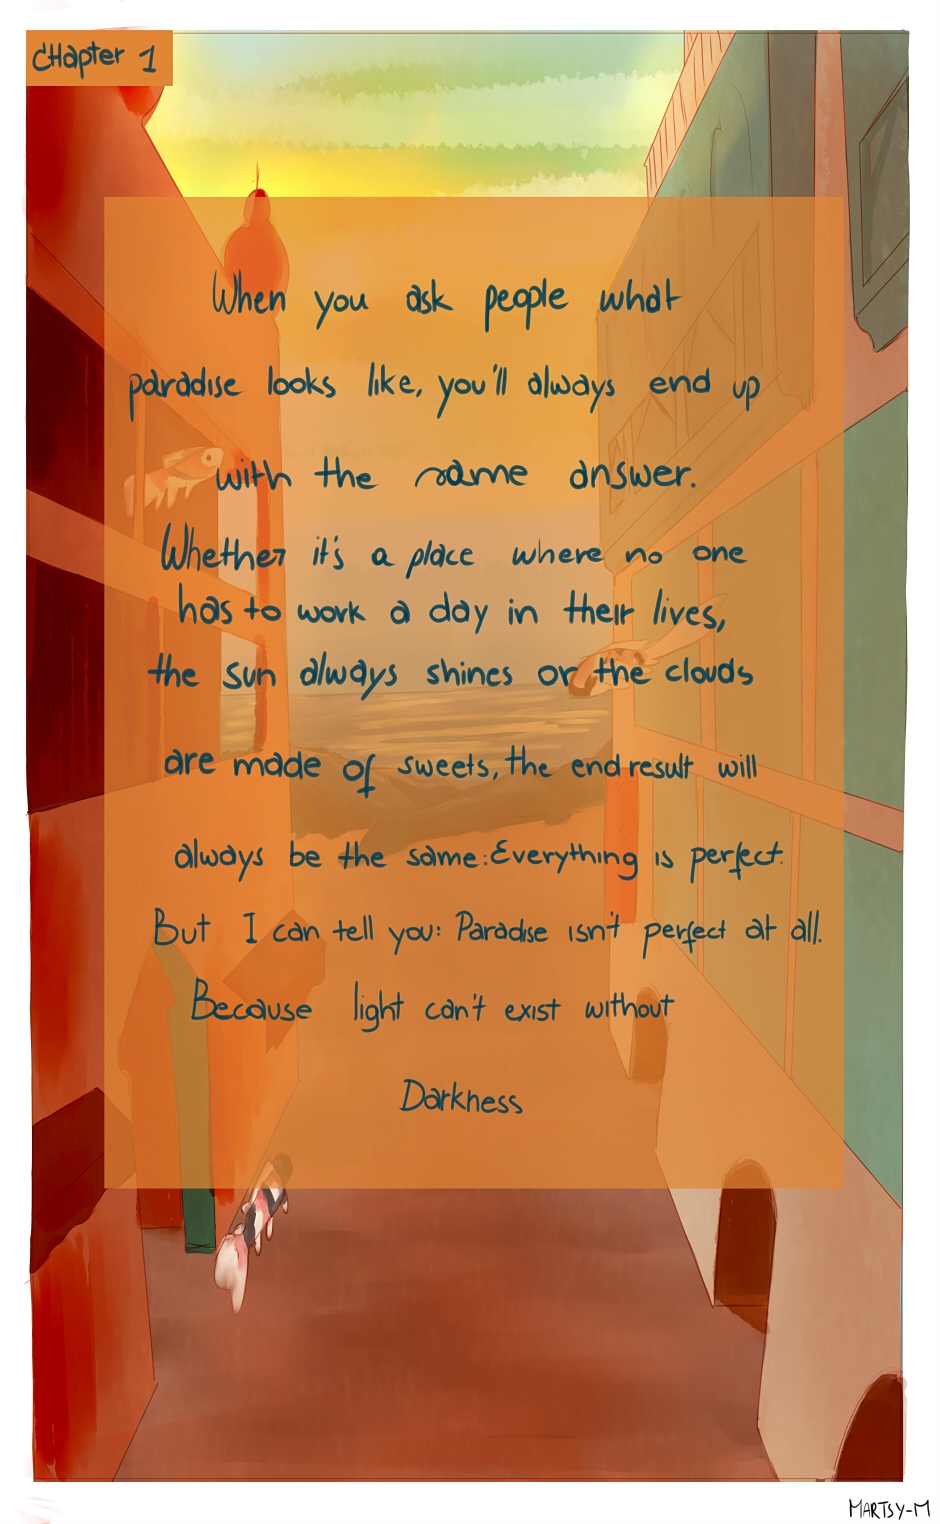 CHapter 1
When you ask people what
paradise looks like, you'll always end up
with the same answer.
Whether it's a place where no one
has to work a day in their lives,
the sun always shines or the clouds
are made of sweets, the end result will
always be the same: Everything is perfect.
But I can tell you: Paradise isn't perfect at all.
Because light can't exist without
Darkness
MARTSY-M